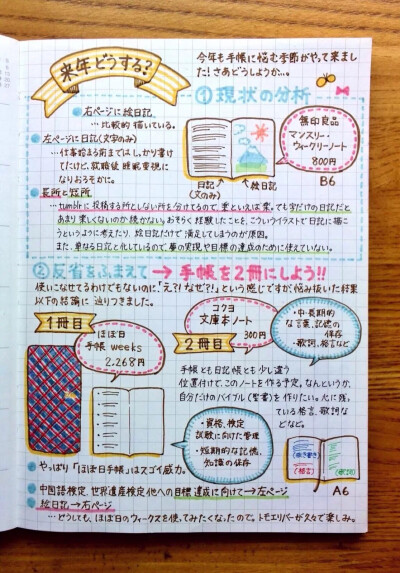 来年どうする?
今年も手帳に悩む季節がやって来ま
した!さあどうしようか…。
①現状の分析
右ページに絵日記
…比較的描いている。
左ページに日記(文字のみ)
…仕事始まる前まではしっかり書け
てたけど、就職後睡眠重視に
なりおろそかに。
無印良品
マンスリー・
ウィークリーノート
800円
B6
日記
(文のみ)
絵日記
長所と短所
…tumblrに投稿する所としない所を分けてるので、楽といえば楽。でも字だけの日記だと
あまり楽しくないのか続かない。おそらく経験したことを、こういうイラストで日記に描こ
うというように考えたり、絵日記だけで満足してしまうのが原因。
また、単なる日記と化しているので、夢の実現や目標の達成のために使えていない。
②反省をふまえて→手帳を2冊にしよう!!
使いこなせてるわけでもないのに「え?!なぜ?!」という感じですが、悩み抜いた結果
以下の結論に辿りつきました。
1冊目
ほぼ日
手帳 weeks
2,268円
コクヨ
文庫本ノート
300円
2冊目
・中・長期的
な言葉、記憶の
保存
・歌詞、格言など
手帳とも日記帳とも少し違う
位置付けで、このノートを作る予定。なんというか、
自分だけのバイブル(聖書)を作りたい。心に残っ
ている格言、歌詞な
どなど。
・資格、検定
試験に向けた管理
・短期的な記憶、
知識の保存
(格言)
(歌詞)
A6
やっぱり「ほぼ日手帳」はスゴイ威力。
中国語検定、世界遺産検定他への目標達成に向けて→左ページ
絵日記→右ページ
…どうしても、ほぼ日のウィークスを使ってみたくなったので。トモエリバーが久々で楽しみ。